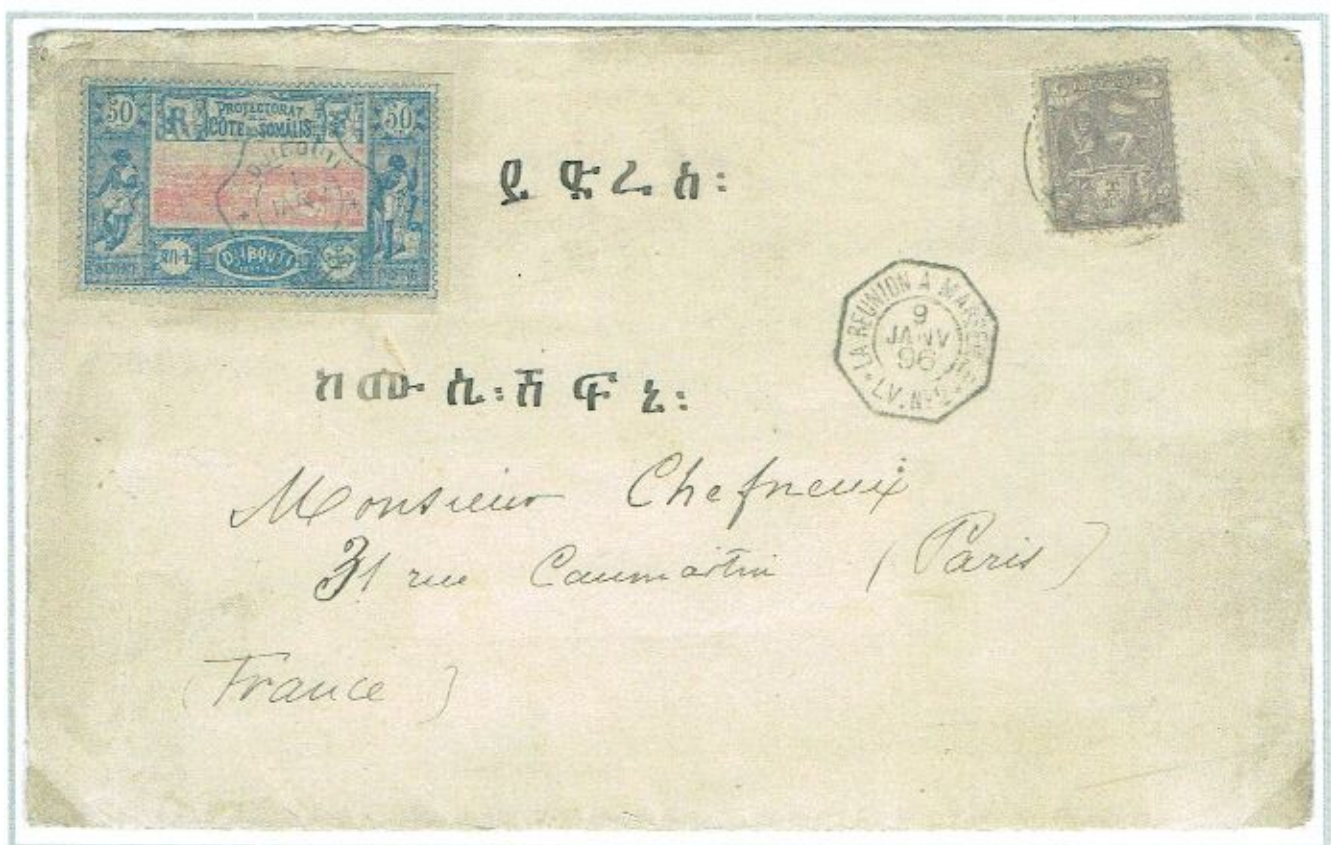 50 PROTECTORAT 50
R CÔTE DES SOMALIS F
DJIBOUTI
DJIBOUTI
ይድረስ፡
LA REUNION A MARSEILLE
9
JANV
96
LV. Nº
ከሙሴ፡ሸፍኔ፡
Monsieur Chefneux
31 rue Caumartin (Paris)
(France)